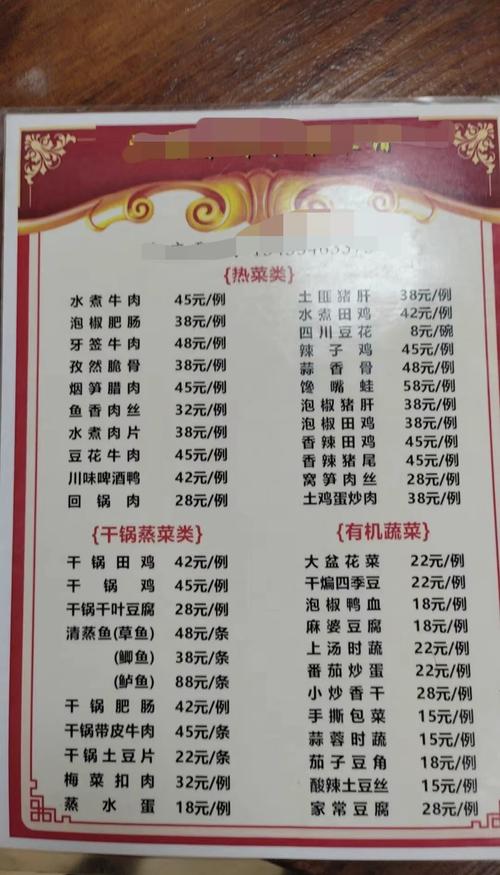 {热菜类}
水煮牛肉 45元/例
泡椒肥肠 38元/例
牙签牛肉 48元/例
孜然脆骨 38元/例
烟笋腊肉 45元/例
鱼香肉丝 32元/例
水煮肉片 38元/例
豆花牛肉 45元/例
川味啤酒鸭 42元/例
回锅肉 28元/例
土匪猪肝 38元/例
水煮田鸡 42元/例
四川豆花 8元/碗
辣子鸡 45元/例
蒜香骨 48元/例
馋嘴蛙 58元/例
泡椒猪肝 38元/例
泡椒田鸡 38元/例
香辣田鸡 45元/例
香辣猪尾 45元/例
窝笋肉丝 28元/例
土鸡蛋炒肉 38元/例
{干锅蒸菜类}
干锅田鸡 42元/例
干锅鸡 45元/例
干锅千叶豆腐 28元/例
清蒸鱼(草鱼) 48元/条
(鲫鱼) 38元/条
(鲈鱼) 88元/条
干锅肥肠 42元/例
干锅带皮牛肉 45元/例
干锅土豆片 22元/条
梅菜扣肉 32元/例
蒸水蛋 18元/例
{有机蔬菜}
大盆花菜 22元/例
干煸四季豆 22元/例
泡椒鸭血 18元/例
麻婆豆腐 18元/例
上汤时蔬 22元/例
番茄炒蛋 22元/例
小炒香干 28元/例
手撕包菜 15元/例
蒜蓉时蔬 15元/例
茄子豆角 18元/例
酸辣土豆丝 15元/例
家常豆腐 28元/例